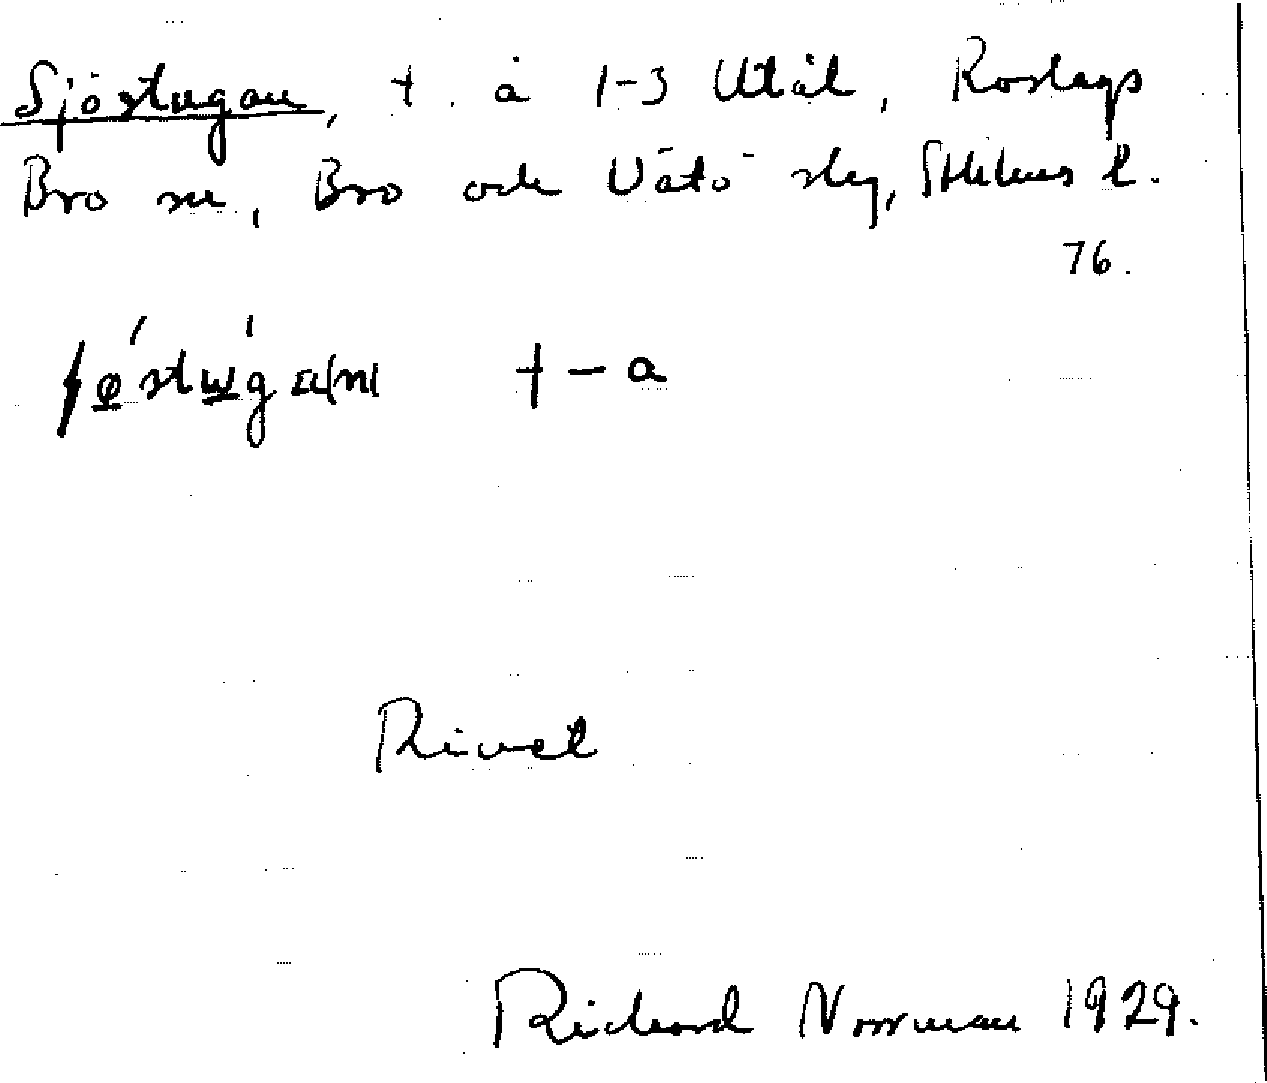 Sjöstugan, t. å 1-3 Utål, Roslags
Bro sn, Bro och Vätö slg, Sthlms l.
76.
t – a
Rivet
Richard Norrman 1929.